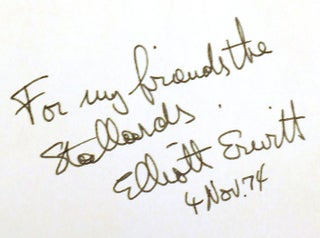 For my friends the
Stallards.
Elliott Erwitt
4 Nov. 74